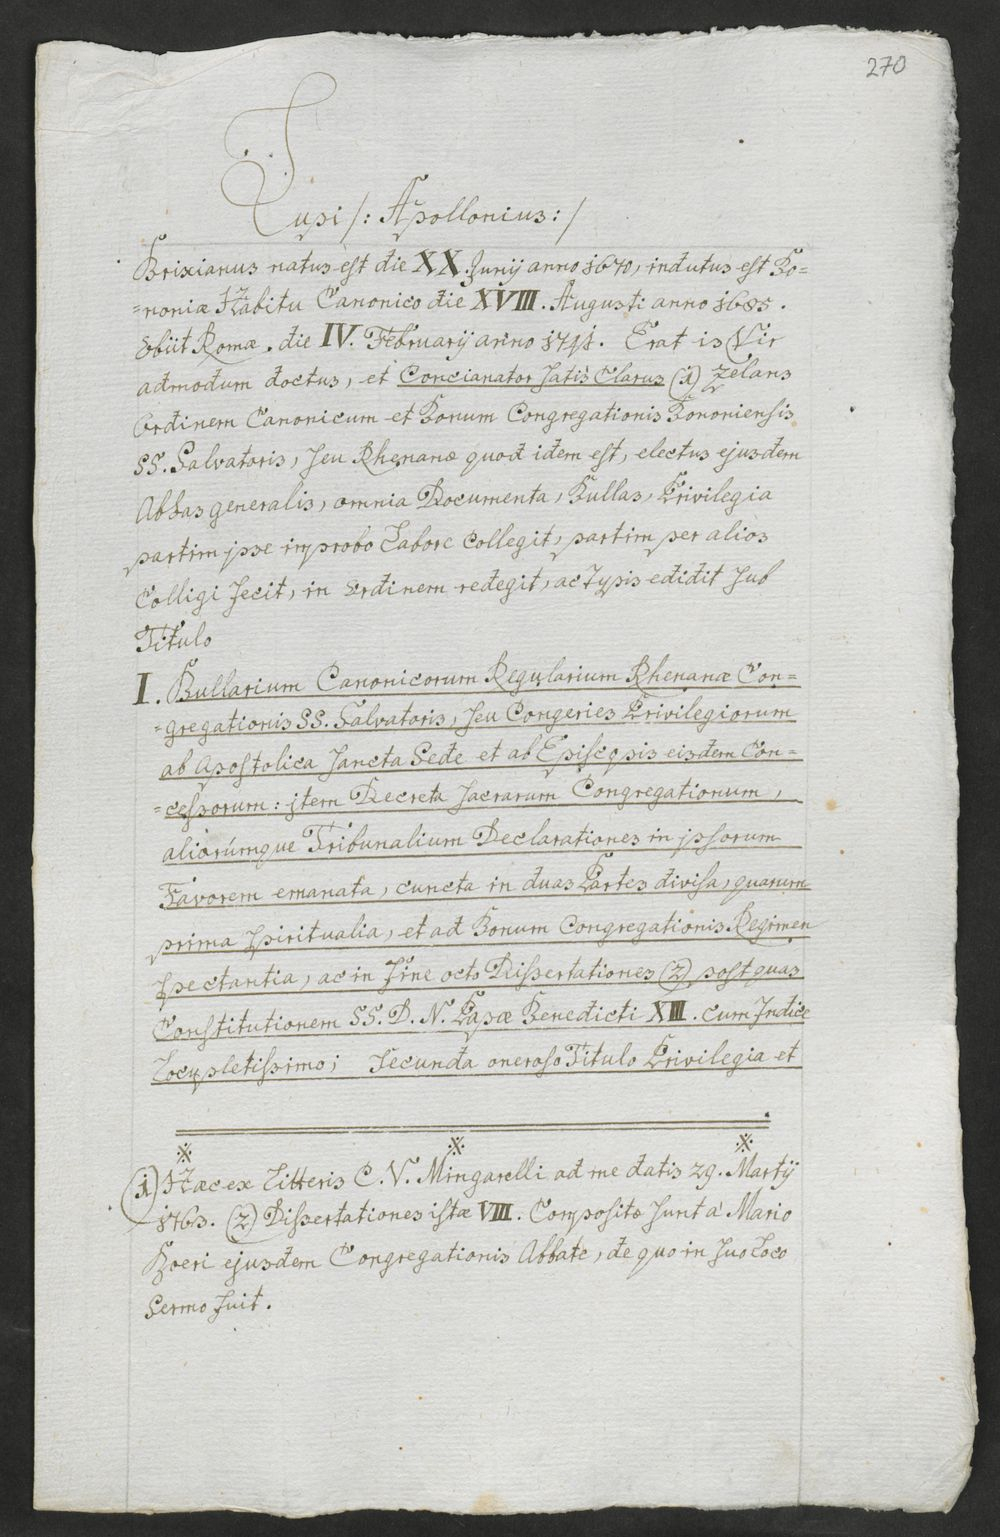 270
Tupi /: Apollonius: /
Brixianus natus est die XX. Junij anno 1670, indutus est Bo=
=noniæ Habitu Canonico die XVIII. Augusti anno 1685.
Obiit Romæ. die IV. Februarij anno 1741. Erat is Vir
admodum doctus, et Concianator satis Clarus (1) zelans
Ordinem Canonicum et Bonum Congregationis Bononiensis
SS. Salvatoris, seu Rhenanæ quod idem est, electus ejusdem
Abbas generalis, omnia Documenta, Bullas, Privilegia
partim jpse improbo Labore Collegit, partim per alios
Colligi fecit, in Ordinem redegit, ac Typis edidit sub
Titulo
I. Bullarium Canonicorum Regularium Rhenanæ Con=
=gregationis SS. Salvatoris, seu Congeries Privilegiorum
ab Apostolica sancta Sede et ab Episcopis eisdem Con=
=cessorum: jtem Decreta sacrarum Congregationum,
aliorúmque Tribunalium Declarationes in jpsorum
Favorem emanata, cuncta in duas Partes divisa, quarum
prima spiritualia, et ad Bonum Congregationis Regimen
spectantia, ac in fine octo Dissertationes (2) post quas
Constitutionem SS. D. N. Papæ Benedicti XIII. cum Indice
Locupletissimo; secunda oneroso Titulo Privilegia et
(1) Hæc ex Litteris C. V. Mingarelli ad me datis 29. Martij
1763. (2) Dissertationes istæ VIII. Compositæ sunt à Mario
Boeri ejusdem Congregationis Abbate, de quo in suo Loco
Sermo fuit.